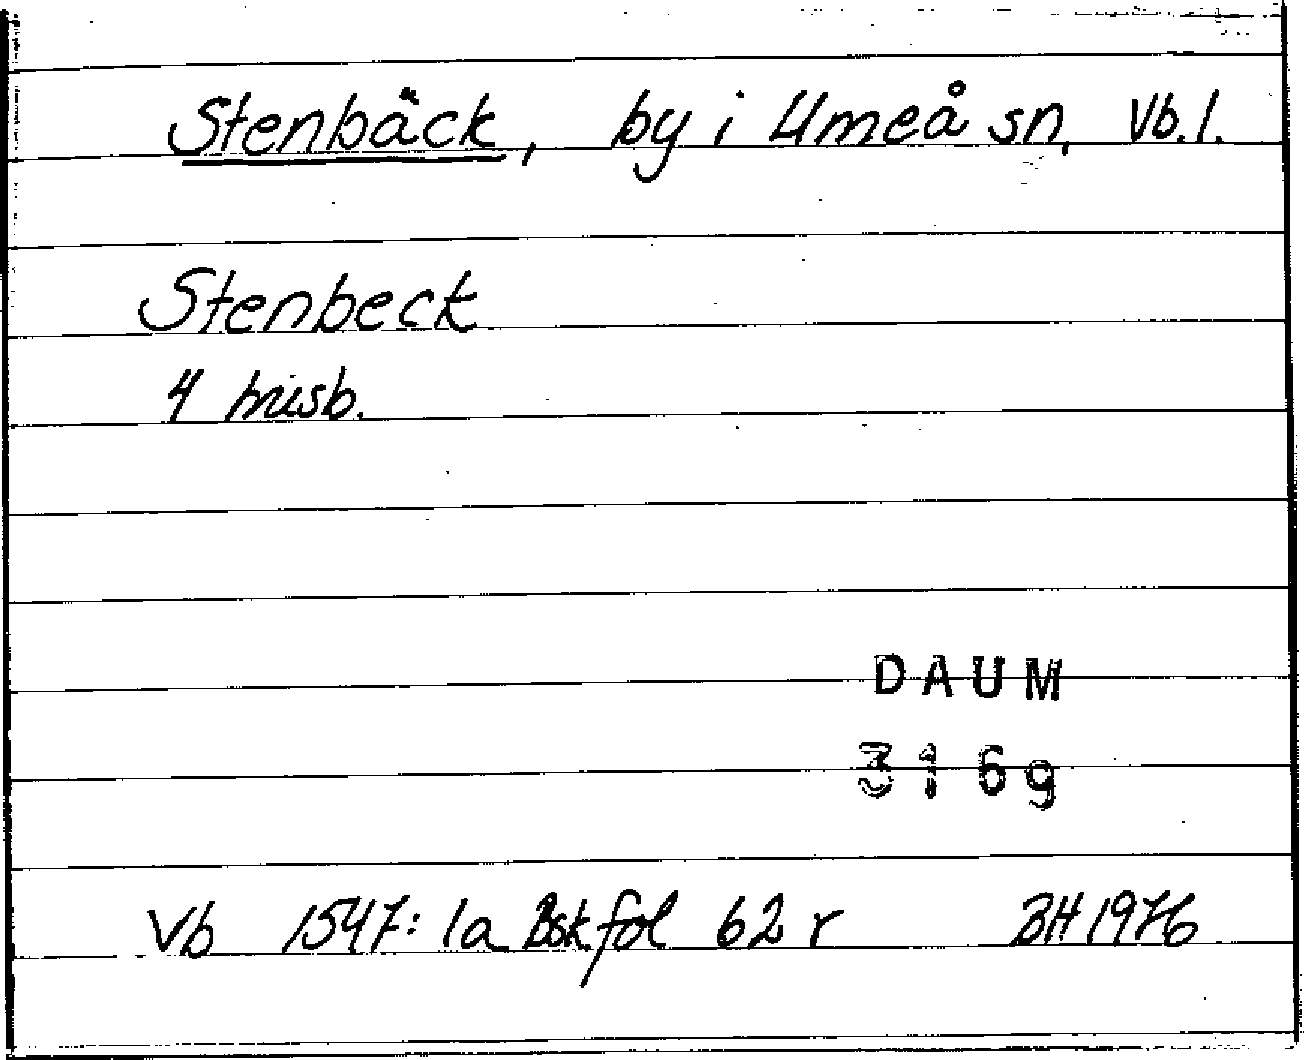 Stenbäck, by i Umeå sn, Vb.l.
Stenbeck
4 husb.
DAUM
3169
Vb 1547:1a Bsk fol 62 r BH 1976